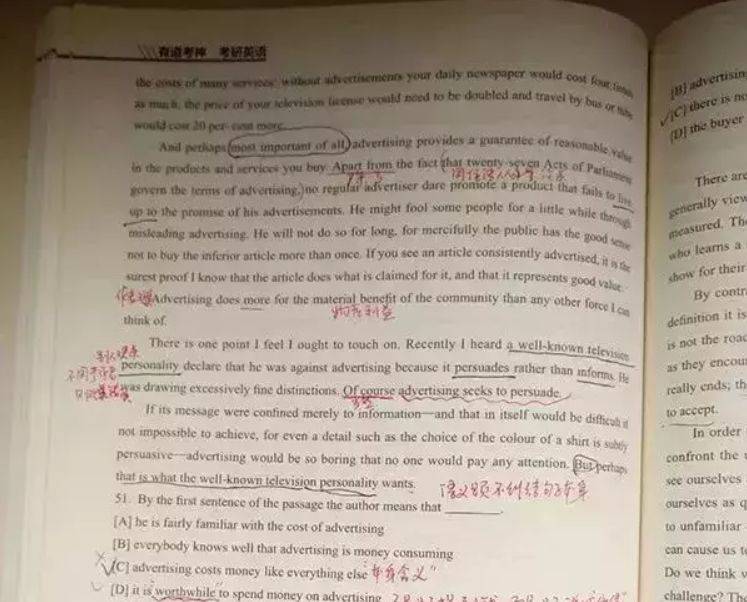 有道考神 考研英语
the costs of many services: without advertisements your daily newspaper would cost four times
as much, the price of your television license would need to be doubled and travel by bus or tube
would cost 20 per cent more.
And perhaps most important of all, advertising provides a guarantee of reasonable value
in the products and services you buy. Apart from the fact that twenty-seven Acts of Parliament
govern the terms of advertising, no regular advertiser dare promote a product that fails to live
up to the promise of his advertisements. He might fool some people for a little while through
misleading advertising. He will not do so for long, for mercifully the public has the good sense
not to buy the inferior article more than once. If you see an article consistently advertised, it is the
surest proof I know that the article does what is claimed for it, and that it represents good value.
Advertising does more for the material benefit of the community than any other force I can
think of.
物质利益
There is one point I feel I ought to touch on. Recently I heard a well-known television
别人观点
personality declare that he was against advertising because it persuades rather than informs. He
was drawing excessively fine distinctions. Of course advertising seeks to persuade.
If its message were confined merely to information—and that in itself would be difficult if
not impossible to achieve, for even a detail such as the choice of the colour of a shirt is subtly
persuasive—advertising would be so boring that no one would pay any attention. But perhaps
that is what the well-known television personality wants.
51. By the first sentence of the passage the author means that
[A] he is fairly familiar with the cost of advertising
[B] everybody knows well that advertising is money consuming
[C] advertising costs money like everything else
[D] it is worthwhile to spend money on advertising
[B] advertising
[C] there is no
[D] the buyer
There are
generally view
measured. Th
who learns a
show for their
By contr
definition it is
is not the road
as they encou
really ends; th
to accept.
In order
confront the
see ourselves
ourselves as
to unfamiliar
can cause us t
Do we think w
challenge? The